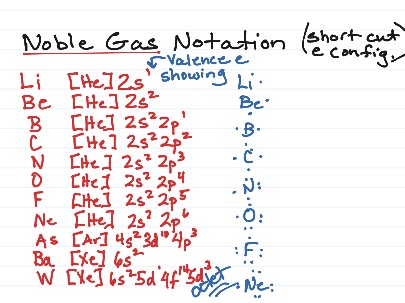 Noble Gas Notation (short cut
e config.)
Valence e
showing
Li [He] 2s¹ Li·
Be [He] 2s² Be·
B [He] 2s² 2p¹ ·B·
C [He] 2s² 2p² ·C·
N [He] 2s² 2p³ ·N:
O [He] 2s² 2p⁴ ·O:
F [He] 2s² 2p⁵ :F:
Ne [He] 2s² 2p⁶
As [Ar] 4s² 3d¹⁰ 4p³
Ba [Xe] 6s²
W [Xe] 6s² 5d¹ 4f¹⁴ 5d³ octet :Ne: